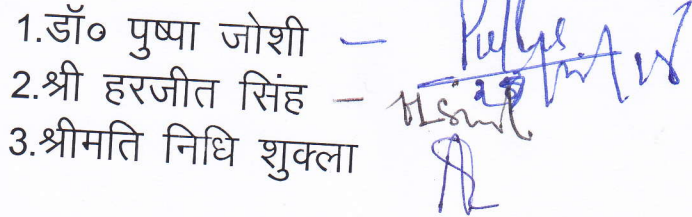 1.डॉ० पुष्पा जोशी –
2.श्री हरजीत सिंह –
3.श्रीमति निधि शुक्ला